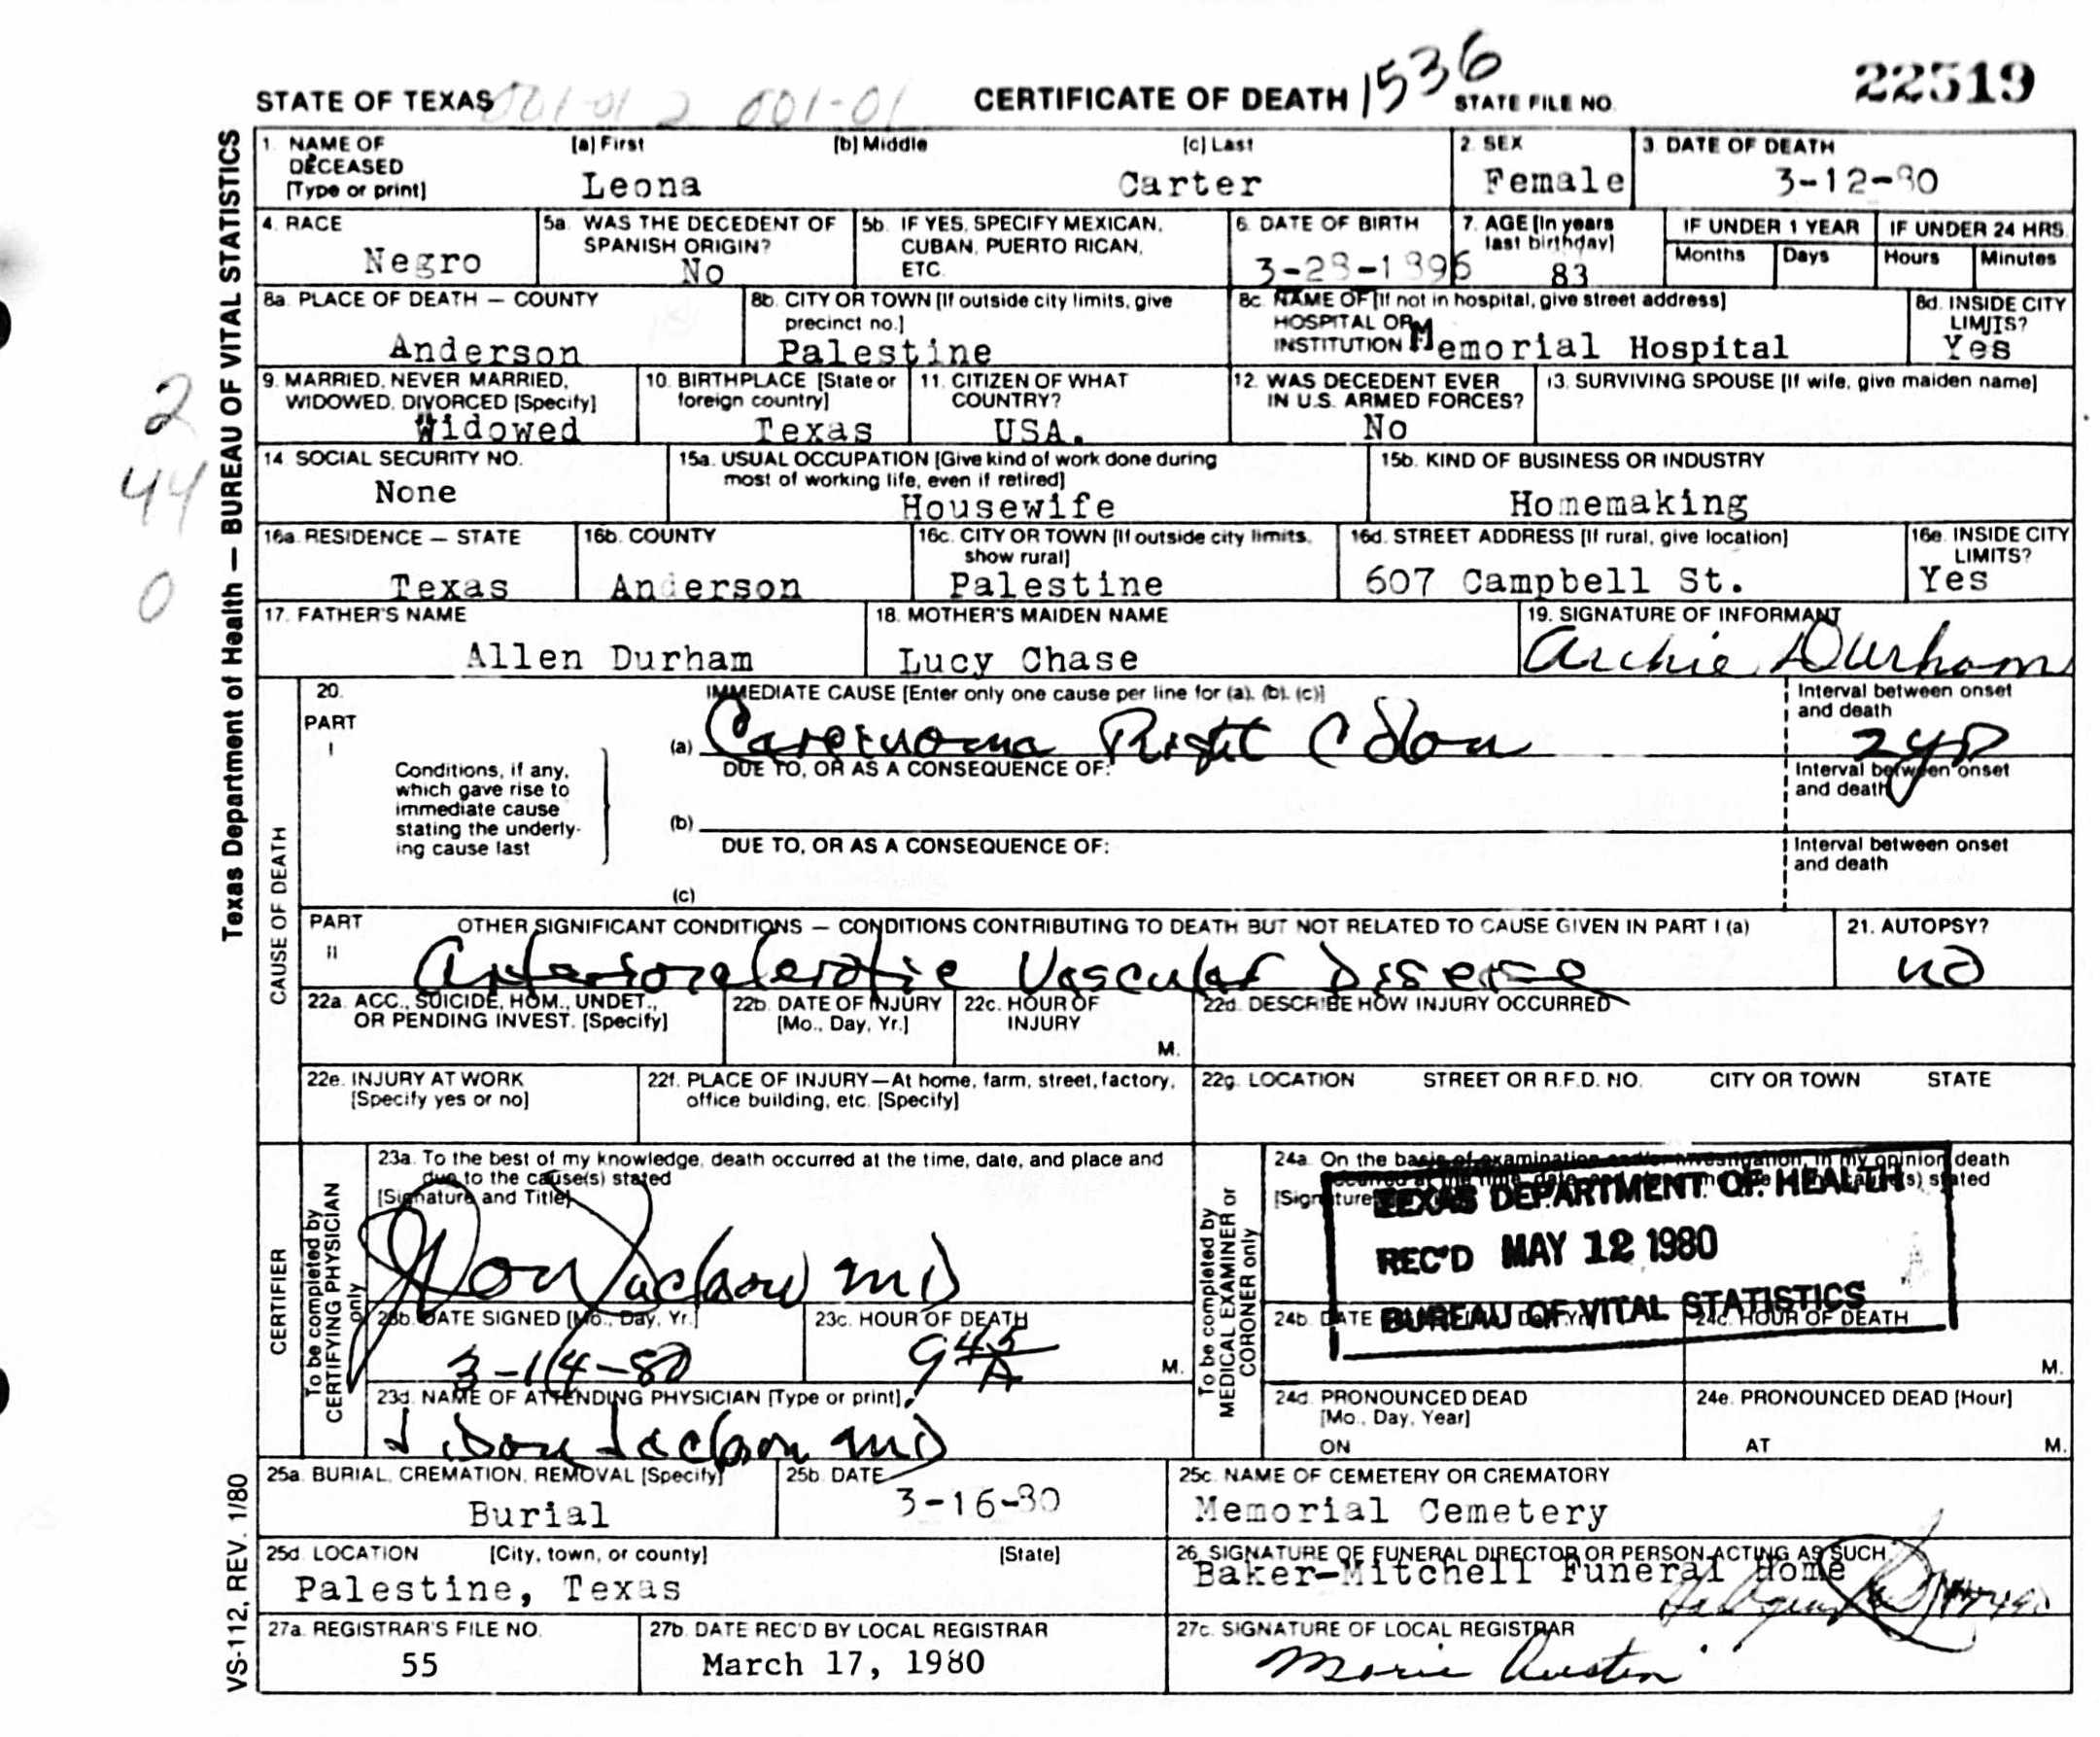 STATE OF TEXAS 001-01 2 001-01 CERTIFICATE OF DEATH 1536 STATE FILE NO. 22519
Texas Department of Health — BUREAU OF VITAL STATISTICS
1. NAME OF DECEASED [Type or print] (a) First (b) Middle (c) Last
Leona Carter
2. SEX
Female
3. DATE OF DEATH
3-12-80
4. RACE
Negro
5a. WAS THE DECEDENT OF SPANISH ORIGIN?
No
5b. IF YES, SPECIFY MEXICAN, CUBAN, PUERTO RICAN, ETC.
6. DATE OF BIRTH
3-28-1896
7. AGE [In years last birthday]
83
IF UNDER 1 YEAR
Months Days
IF UNDER 24 HRS.
Hours Minutes
8a. PLACE OF DEATH — COUNTY
Anderson
8b. CITY OR TOWN [If outside city limits, give precinct no.]
Palestine
8c. NAME OF [If not in hospital, give street address]
HOSPITAL OR
INSTITUTION Memorial Hospital
8d. INSIDE CITY LIMITS?
Yes
2
44
0
9. MARRIED, NEVER MARRIED, WIDOWED, DIVORCED [Specify]
Widowed
10. BIRTHPLACE [State or foreign country]
Texas
11. CITIZEN OF WHAT COUNTRY?
USA.
12. WAS DECEDENT EVER IN U.S. ARMED FORCES?
No
13. SURVIVING SPOUSE [If wife, give maiden name]
14. SOCIAL SECURITY NO.
None
15a. USUAL OCCUPATION [Give kind of work done during most of working life, even if retired]
Housewife
15b. KIND OF BUSINESS OR INDUSTRY
Homemaking
16a. RESIDENCE — STATE
Texas
16b. COUNTY
Anderson
16c. CITY OR TOWN [If outside city limits, show rural]
Palestine
16d. STREET ADDRESS [If rural, give location]
607 Campbell St.
16e. INSIDE CITY LIMITS?
Yes
17. FATHER'S NAME
Allen Durham
18. MOTHER'S MAIDEN NAME
Lucy Chase
19. SIGNATURE OF INFORMANT
Archie Durham
CAUSE OF DEATH
20.
PART I
IMMEDIATE CAUSE [Enter only one cause per line for (a), (b), (c)]
(a) Carcinoma Right Colon
Interval between onset and death
2 yr
Conditions, if any, which gave rise to immediate cause stating the underlying cause last
DUE TO, OR AS A CONSEQUENCE OF:
(b)
Interval between onset and death
DUE TO, OR AS A CONSEQUENCE OF:
(c)
Interval between onset and death
PART II
OTHER SIGNIFICANT CONDITIONS — CONDITIONS CONTRIBUTING TO DEATH BUT NOT RELATED TO CAUSE GIVEN IN PART I (a)
Arteriosclerotic Vascular Disease
21. AUTOPSY?
no
22a. ACC., SUICIDE, HOM., UNDET., OR PENDING INVEST. [Specify]
22b. DATE OF INJURY [Mo., Day, Yr.]
22c. HOUR OF INJURY
M.
22d. DESCRIBE HOW INJURY OCCURRED
22e. INJURY AT WORK [Specify yes or no]
22f. PLACE OF INJURY—At home, farm, street, factory, office building, etc. [Specify]
22g. LOCATION STREET OR R.F.D. NO. CITY OR TOWN STATE
CERTIFIER
To be completed by CERTIFYING PHYSICIAN only
23a. To the best of my knowledge, death occurred at the time, date, and place and due to the cause(s) stated
[Signature and Title]
J Don Jackson MD
23b. DATE SIGNED [Mo., Day, Yr.]
3-14-80
23c. HOUR OF DEATH
9 45 A
M.
23d. NAME OF ATTENDING PHYSICIAN [Type or print]
J. Don Jackson MD
To be completed by MEDICAL EXAMINER or CORONER only
24a. On the basis of examination and/or investigation, in my opinion death
[Signature
TEXAS DEPARTMENT OF HEALTH
REC'D MAY 12 1980
BUREAU OF VITAL STATISTICS
24b. DATE
24c. HOUR OF DEATH
M.
24d. PRONOUNCED DEAD [Mo., Day, Year]
ON
24e. PRONOUNCED DEAD [Hour]
AT M.
25a. BURIAL, CREMATION, REMOVAL [Specify]
Burial
25b. DATE
3-16-80
25c. NAME OF CEMETERY OR CREMATORY
Memorial Cemetery
25d. LOCATION [City, town, or county] [State]
Palestine, Texas
26. SIGNATURE OF FUNERAL DIRECTOR OR PERSON ACTING AS SUCH
Baker-Mitchell Funeral Home
27a. REGISTRAR'S FILE NO.
55
27b. DATE REC'D BY LOCAL REGISTRAR
March 17, 1980
27c. SIGNATURE OF LOCAL REGISTRAR
Marie Austin
VS-112, REV. 1/80